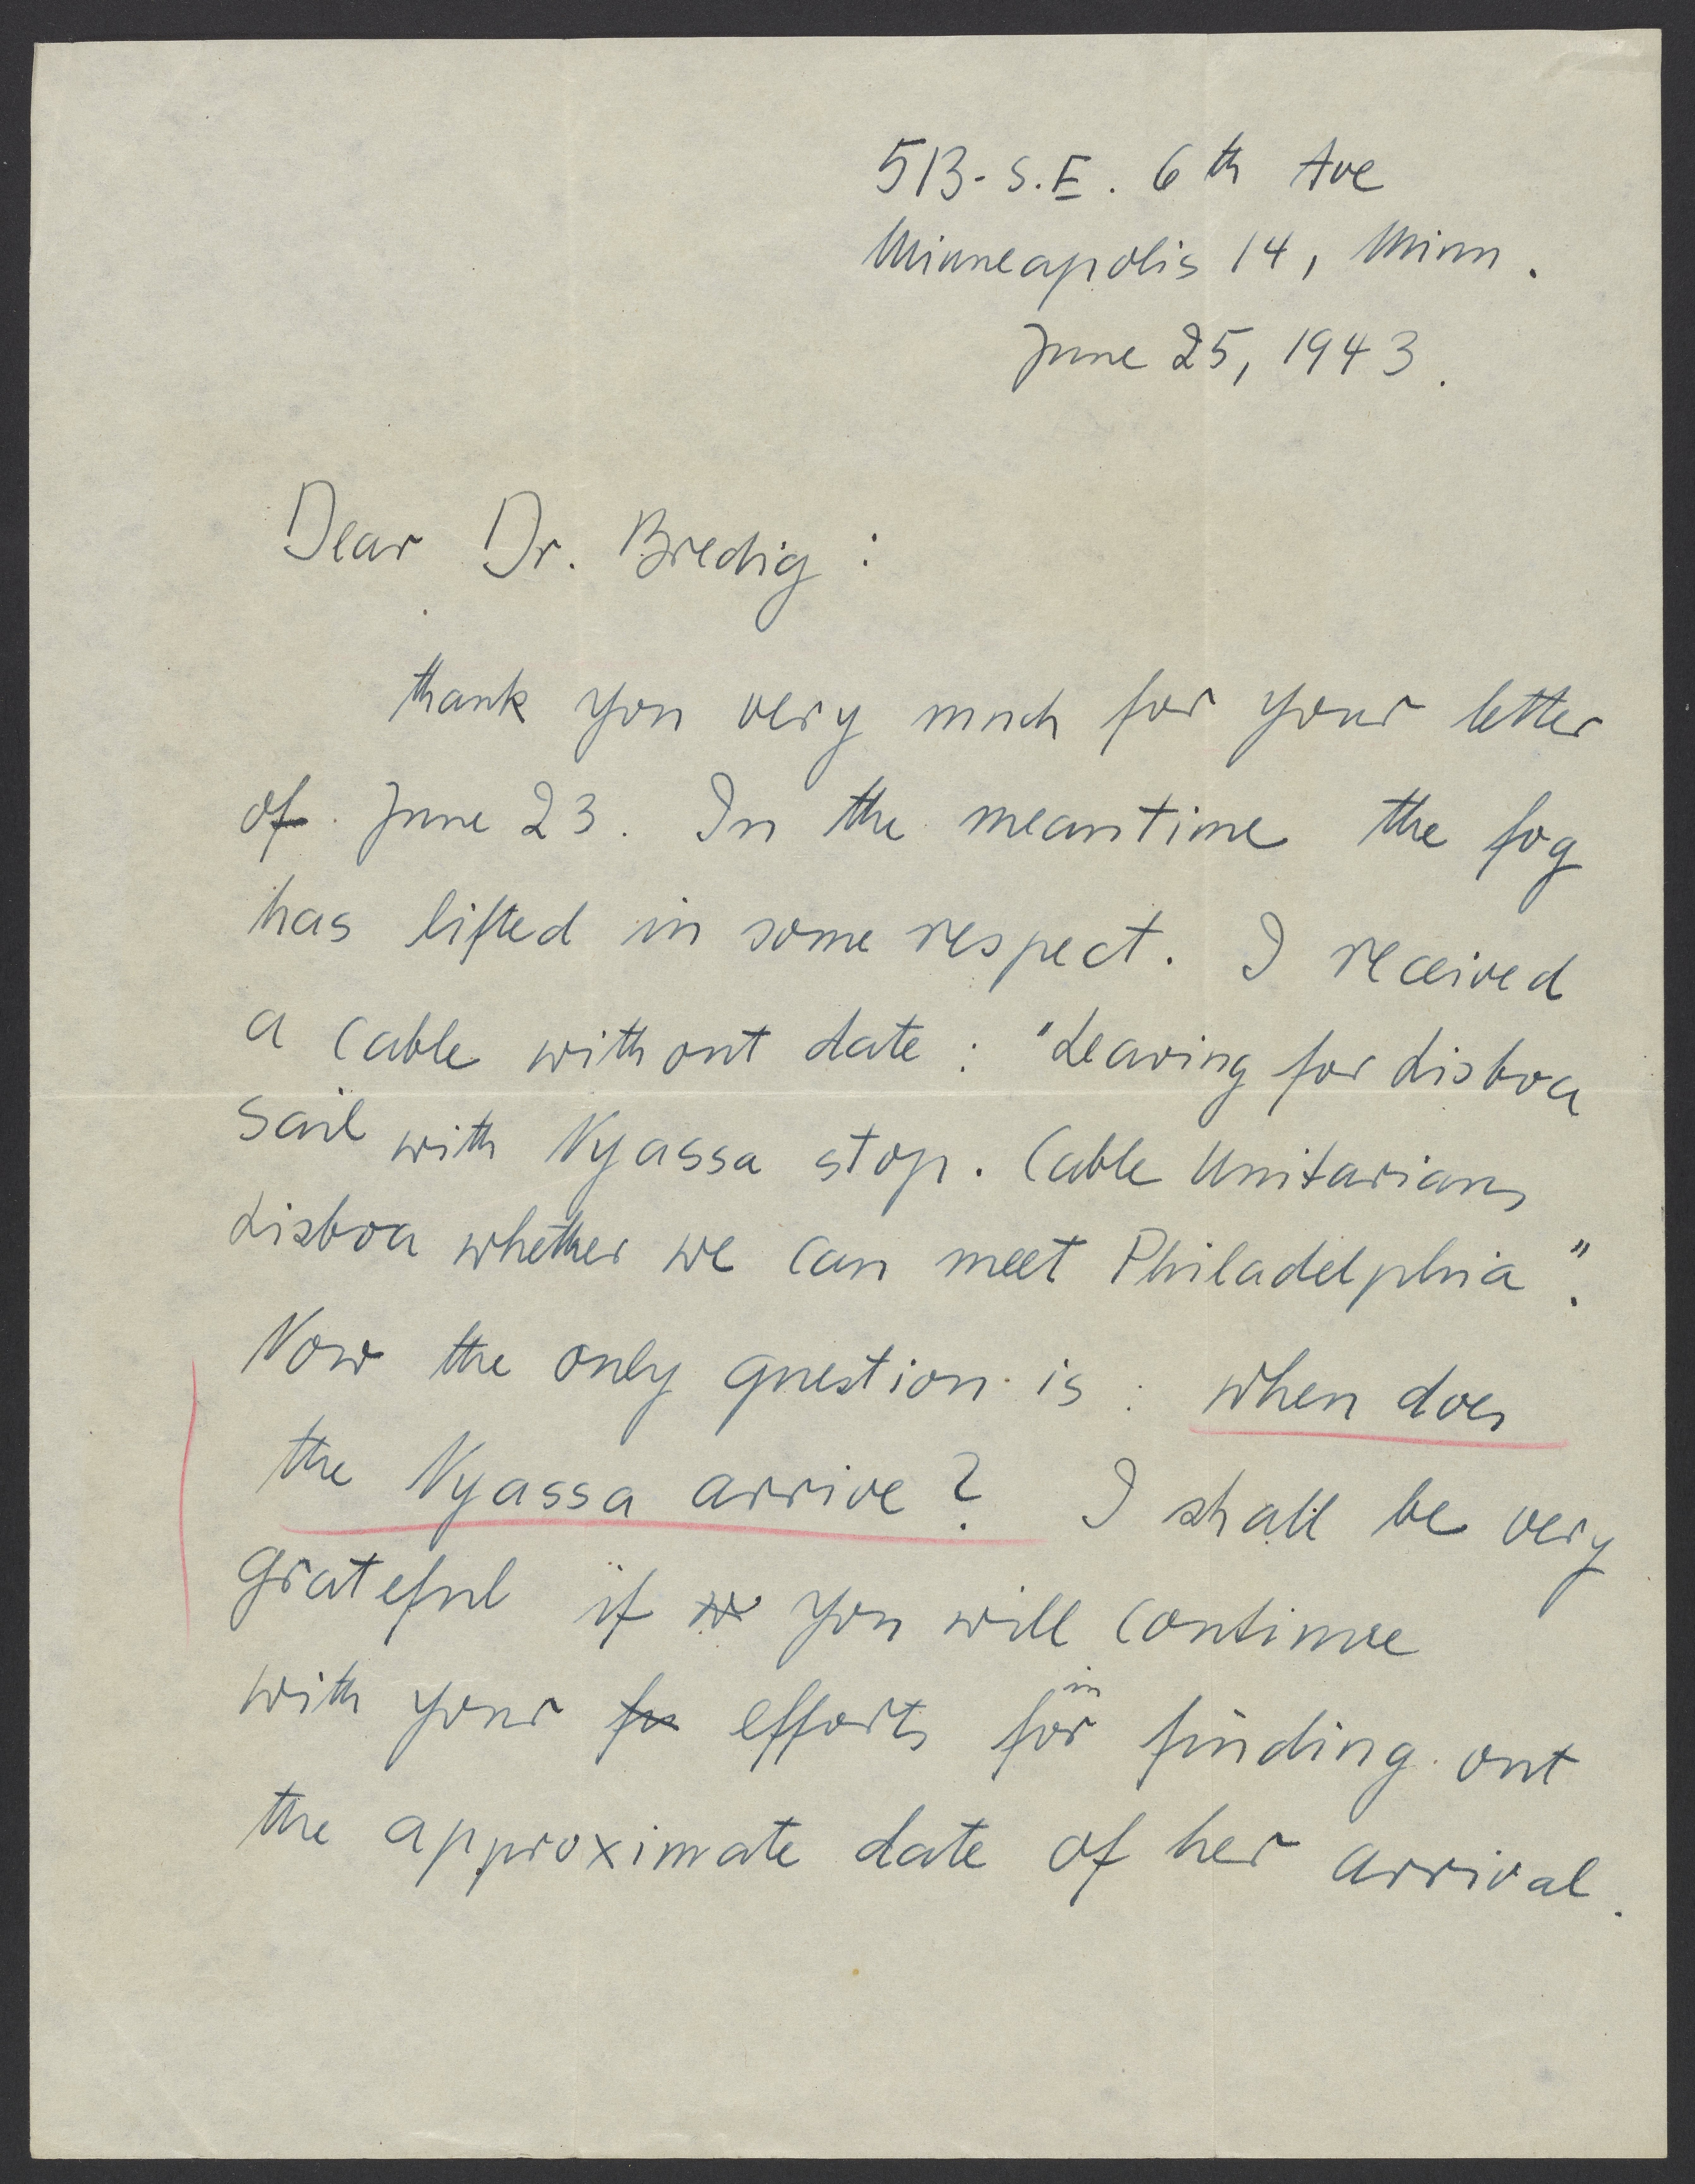 513 - S.E. 6th Ave
Minneapolis 14, Minn.
June 25, 1943.
Dear Dr. Bredig:
thank you very much for your letter
of June 23. In the meantime the fog
has lifted in some respect. I received
a cable without date: "Leaving for Lisboa
sail with Nyassa stop. Cable Unitarians
Lisboa whether we can meet Philadelphia".
Now the only question is: when does
the Nyassa arrive? I shall be very
grateful if you will continue
with your efforts for in finding out
the approximate date of her arrival.